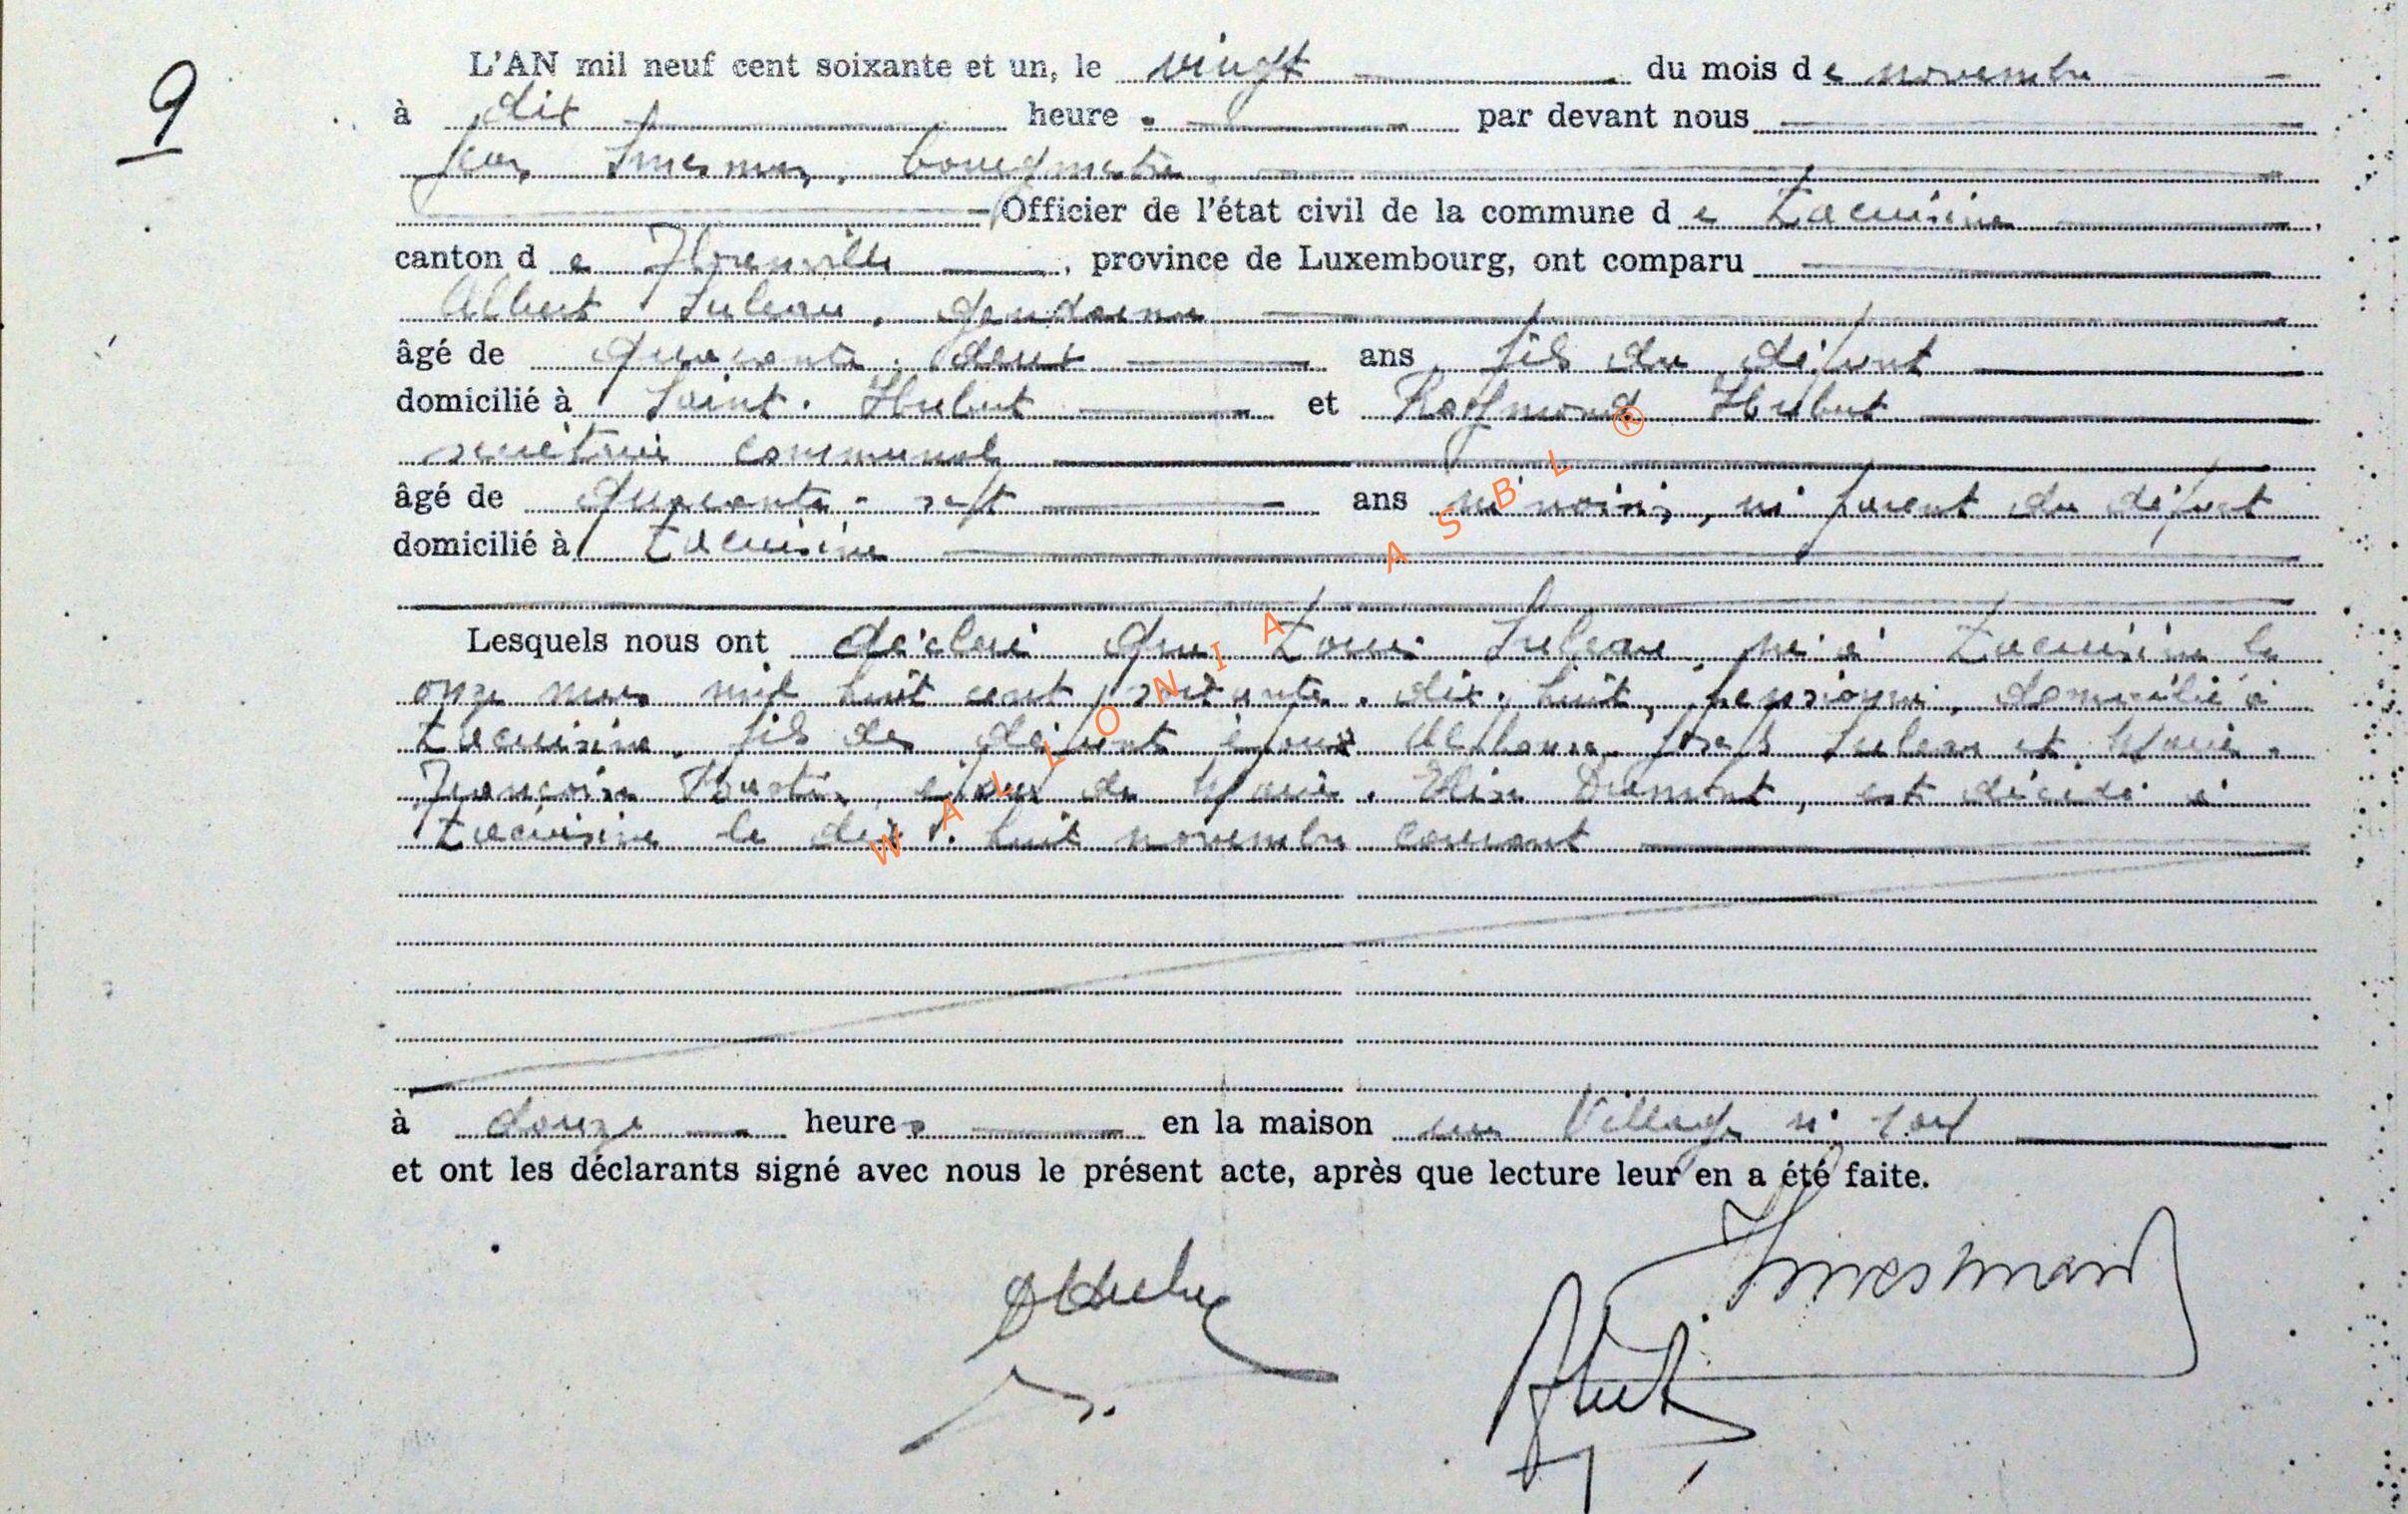 9
L'AN mil neuf cent soixante et un, le vingt du mois de novembre
à dix heures par devant nous
Jean bourgmestre
Officier de l'état civil de la commune de Lacuisine,
canton de Florenville, province de Luxembourg, ont comparu
Albert gendarme
âgé de quarante-deux ans fils du défunt
domicilié à Saint-Hubert et Raymond Hubert
secrétaire communal
âgé de quarante-sept ans ni voisin, ni parent du défunt
domicilié à Lacuisine
Lesquels nous ont déclaré que Louis né à Lacuisine le
onze mars mil huit cent soixante-dix-huit, pensionné, domicilié à
Lacuisine, fils des défunts époux Alphonse Joseph et Marie-
époux de Marie-Elise Dumont, est décédé à
Lacuisine le dix-huit novembre courant
à douze heures en la maison Village n°
et ont les déclarants signé avec nous le présent acte, après que lecture leur en a été faite.
WALLONIA ASBL ®